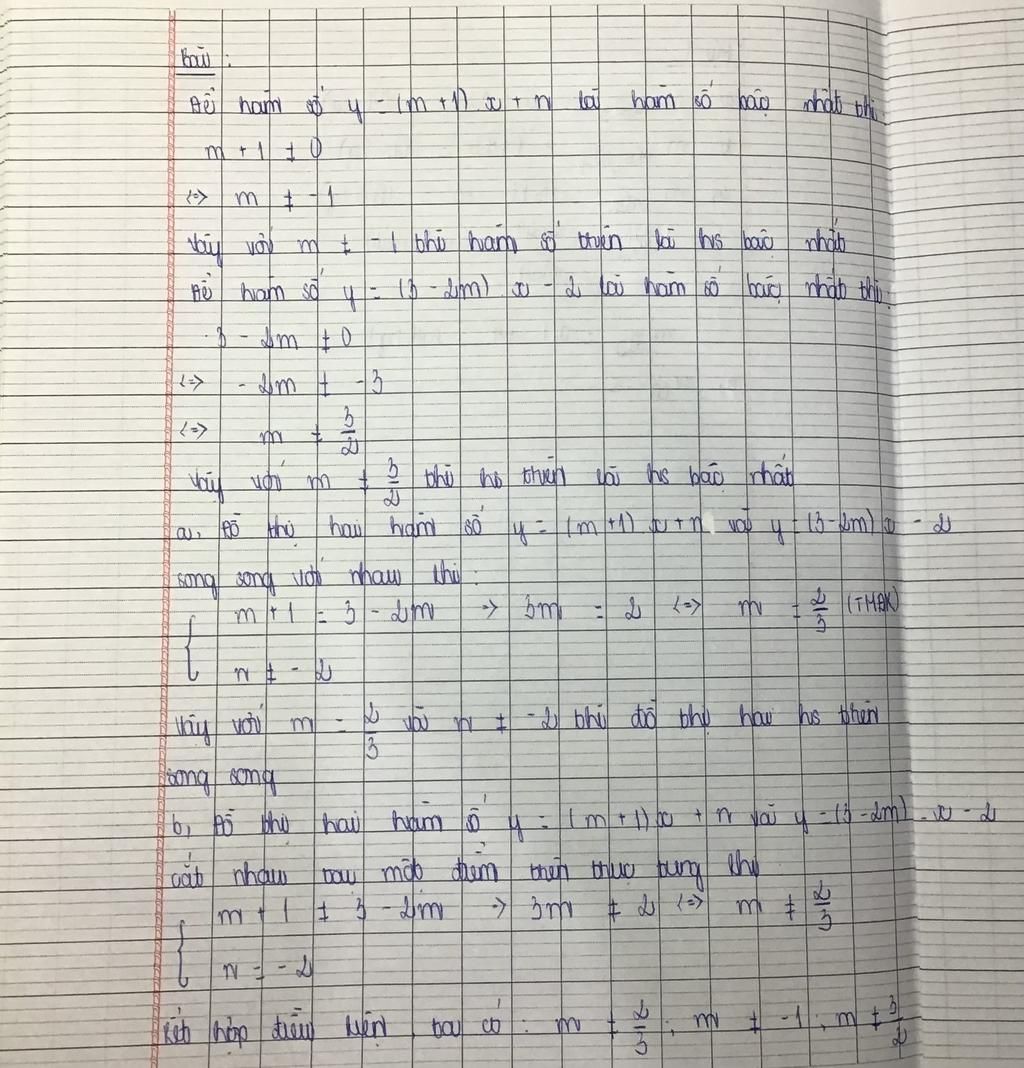 Bài :
Để hàm số y = (m + 1) x + n là hàm số bậc nhất thì
m + 1 ≠ 0
<=> m ≠ -1
Vậy với m ≠ -1 thì hàm số trên là hs bậc nhất
Để hàm số y = (3 - 2m) x - 2 là hàm số bậc nhất thì
3 - 2m ≠ 0
<=> - 2m ≠ -3
<=> m ≠ 3/2
Vậy với m ≠ 3/2 thì hs trên là hs bậc nhất
a, Đồ thị hai hàm số y = (m+1) x + n và y = (3 - 2m) x - 2
song song với nhau thì :
{ m + 1 = 3 - 2m -> 3m = 2 <=> m = 2/3 (TMĐK)
n ≠ - 2
Vậy với m = 2/3 và n ≠ -2 thì đồ thị hai hs trên
song song
b, Đồ thị hai hàm số y = (m+1) x + n và y = (3 - 2m) . x - 2
cắt nhau tại một điểm trên trục tung thì
{ m + 1 ≠ 3 - 2m -> 3m ≠ 2 <=> m ≠ 2/3
n = - 2
Kết hợp điều kiện, ta có : m ≠ 2/3 ; m ≠ -1 ; m ≠ 3/2